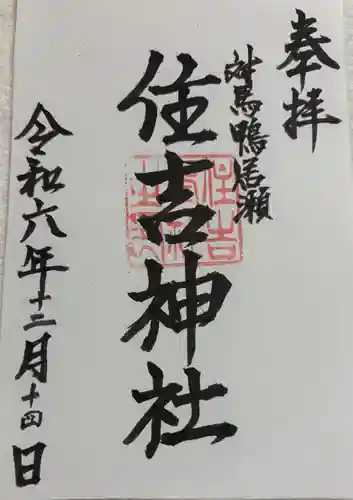 奉拝
対馬鴨居瀬
住吉神社
令和六年十二月十四日